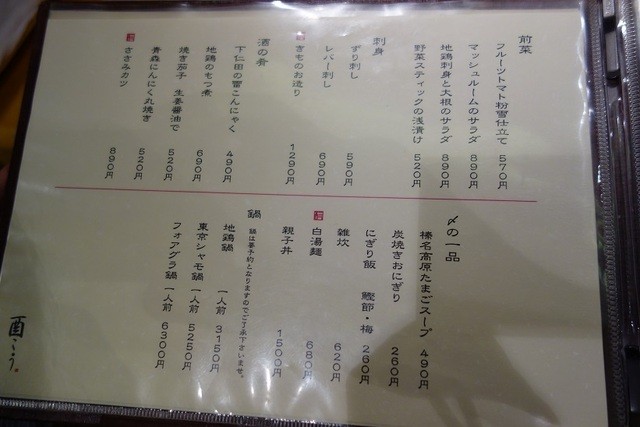 前菜
フルーツトマト粉雪仕立て 570円
マッシュルームのサラダ 890円
地鶏刺身と大根のサラダ 890円
野菜スティックの浅漬け 520円
刺身
ずり刺し 590円
レバー刺し 690円
きものお造り 1290円
酒の肴
下仁田の雷こんにゃく 490円
地鶏のもつ煮 690円
焼き茄子 生姜醤油で 520円
青森にんにく丸焼き 520円
ささみカツ 890円
〆の一品
榛名高原たまごスープ 490円
炭焼きおにぎり 260円
にぎり飯 鰹節・梅 260円
雑炊 620円
白湯麺 680円
親子丼 1500円
鍋 鍋は要予約となりますのでご了承下さいませ。
地鶏鍋 一人前 3150円
東京シャモ鍋 一人前 5250円
フォアグラ鍋 一人前 6300円